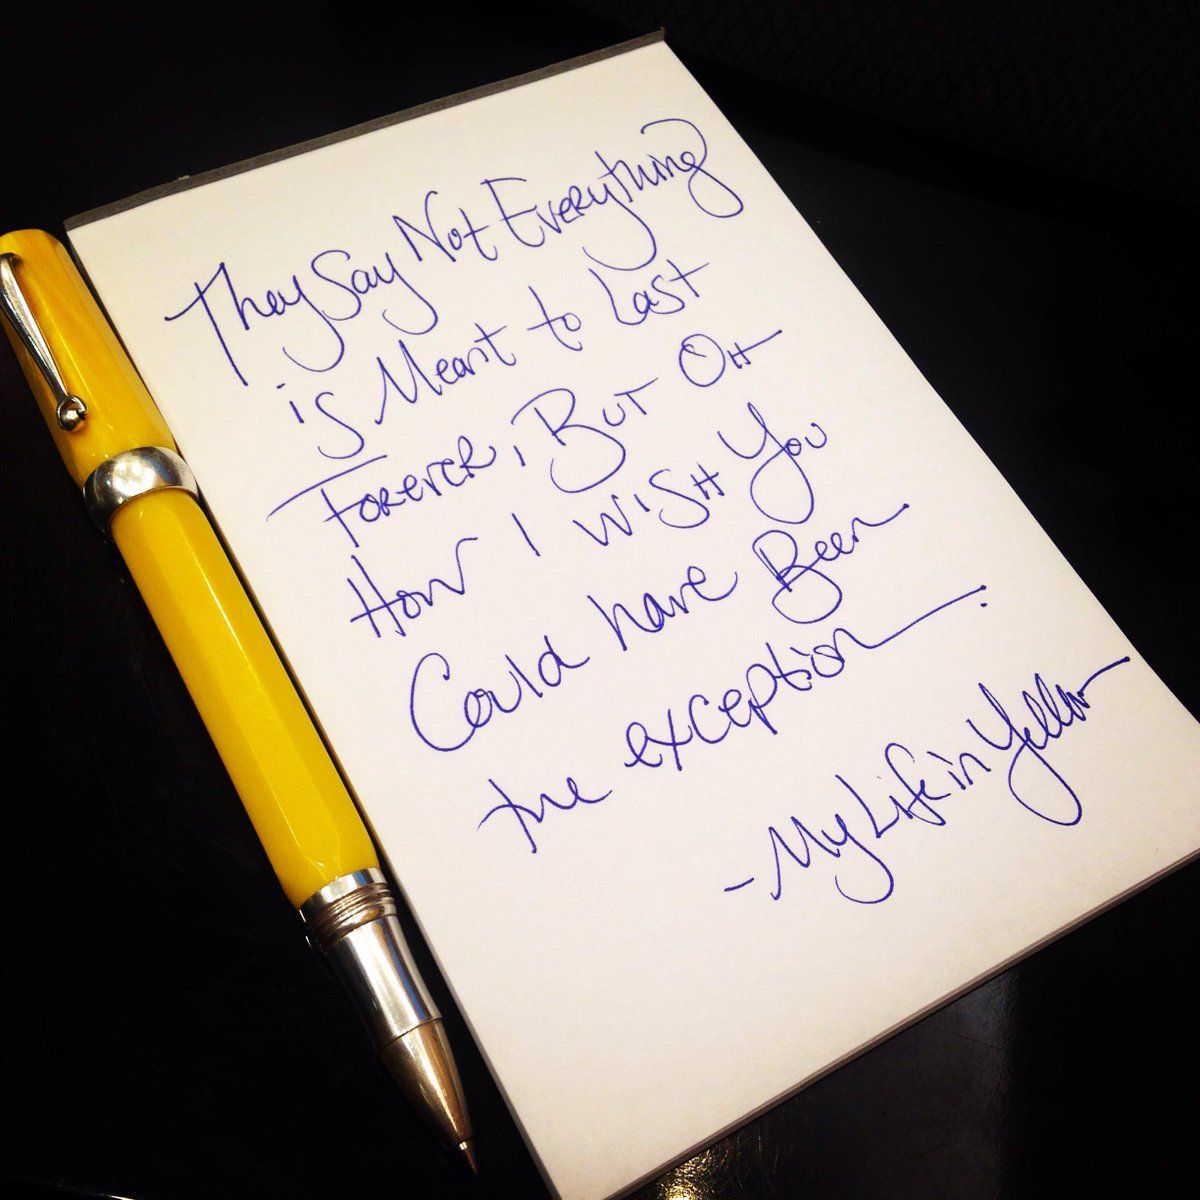 They Say Not Everything
is Meant to Last
Forever, But Oh
How I Wish You
Could have Been
the exception.
- My Life in Yellow